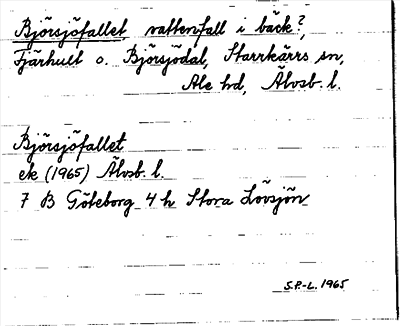 Björsjöfallet, vattenfall i bäck?,
Fjärhult o. Björsjödal, Starrkärrs sn,
Ale hd, Älvsb. l.
Björsjöfallet
ek (1965) Älvsb. l.
7 B Göteborg 4 h Stora Lövsjön
S.P.-L. 1965